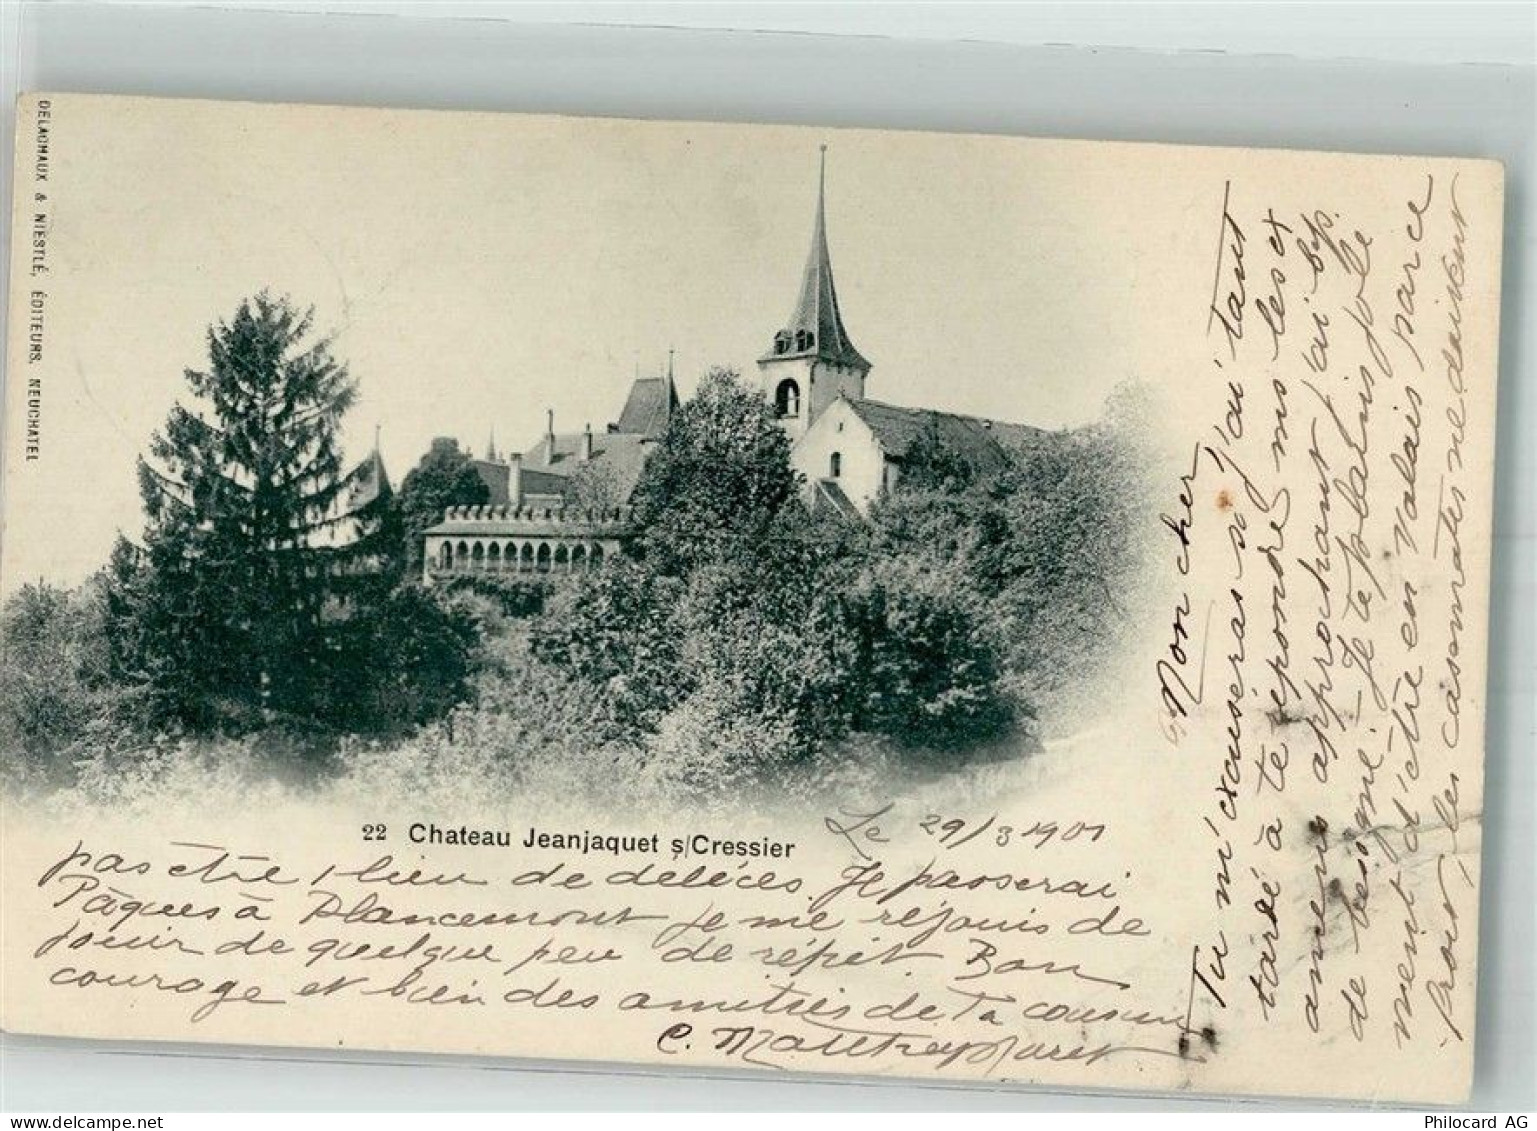 DELACHAUX & NIESTLÉ, ÉDITEURS, NEUCHATEL
22 Chateau Jeanjaquet s/Cressier
Le 29/3 1901
Mon cher
Tu m'excuseras si j'ai tant
tardé à te répondre, ms les ex
amens approchant j'ai bp.
de besogne. Je te plains
ment d'être en Valais parce
pour les casemates me
pas être 1 lieu de délices. Je passerai
Pâques à Plancemont je me réjouis de
jouir de quelque peu de répit. Bon
courage et bien des amitiés de Ta cousine
C.
Philocard AG